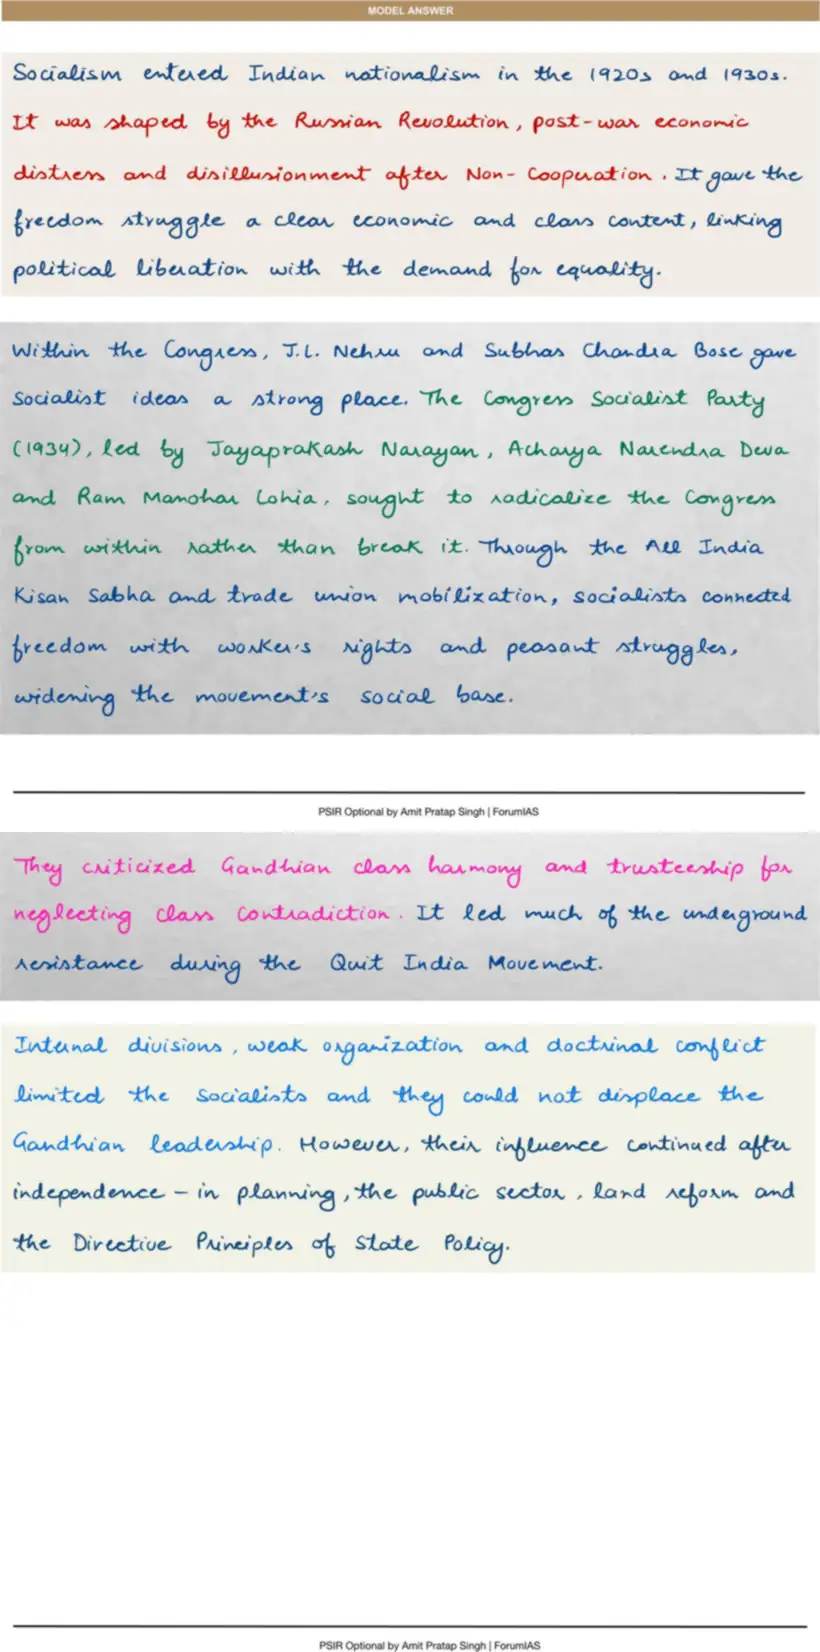 MODEL ANSWER
Socialism entered Indian nationalism in the 1920s and 1930s.
It was shaped by the Russian Revolution, post-war economic
distress and disillusionment after Non-Cooperation. It gave the
freedom struggle a clear economic and class content, linking
political liberation with the demand for equality.
Within the Congress, J.L. Nehru and Subhas Chandra Bose gave
Socialist ideas a strong place. The Congress Socialist Party
(1934), led by Jayaprakash Narayan, Acharya Narendra Deva
and Ram Manohar Lohia, sought to radicalize the Congress
from within rather than break it. Through the All India
Kisan Sabha and trade union mobilization, socialists connected
freedom with worker's rights and peasant struggles,
widening the movement's social base.
PSIR Optional by Amit Pratap Singh | ForumIAS
They criticized Gandhian class harmony and trusteeship for
neglecting class contradiction. It led much of the underground
resistance during the Quit India Movement.
Internal divisions, weak organization and doctrinal conflict
limited the Socialists and they could not displace the
Gandhian leadership. However, their influence continued after
independence – in planning, the public sector, land reform and
the Directive Principles of State Policy.
PSIR Optional by Amit Pratap Singh | ForumIAS